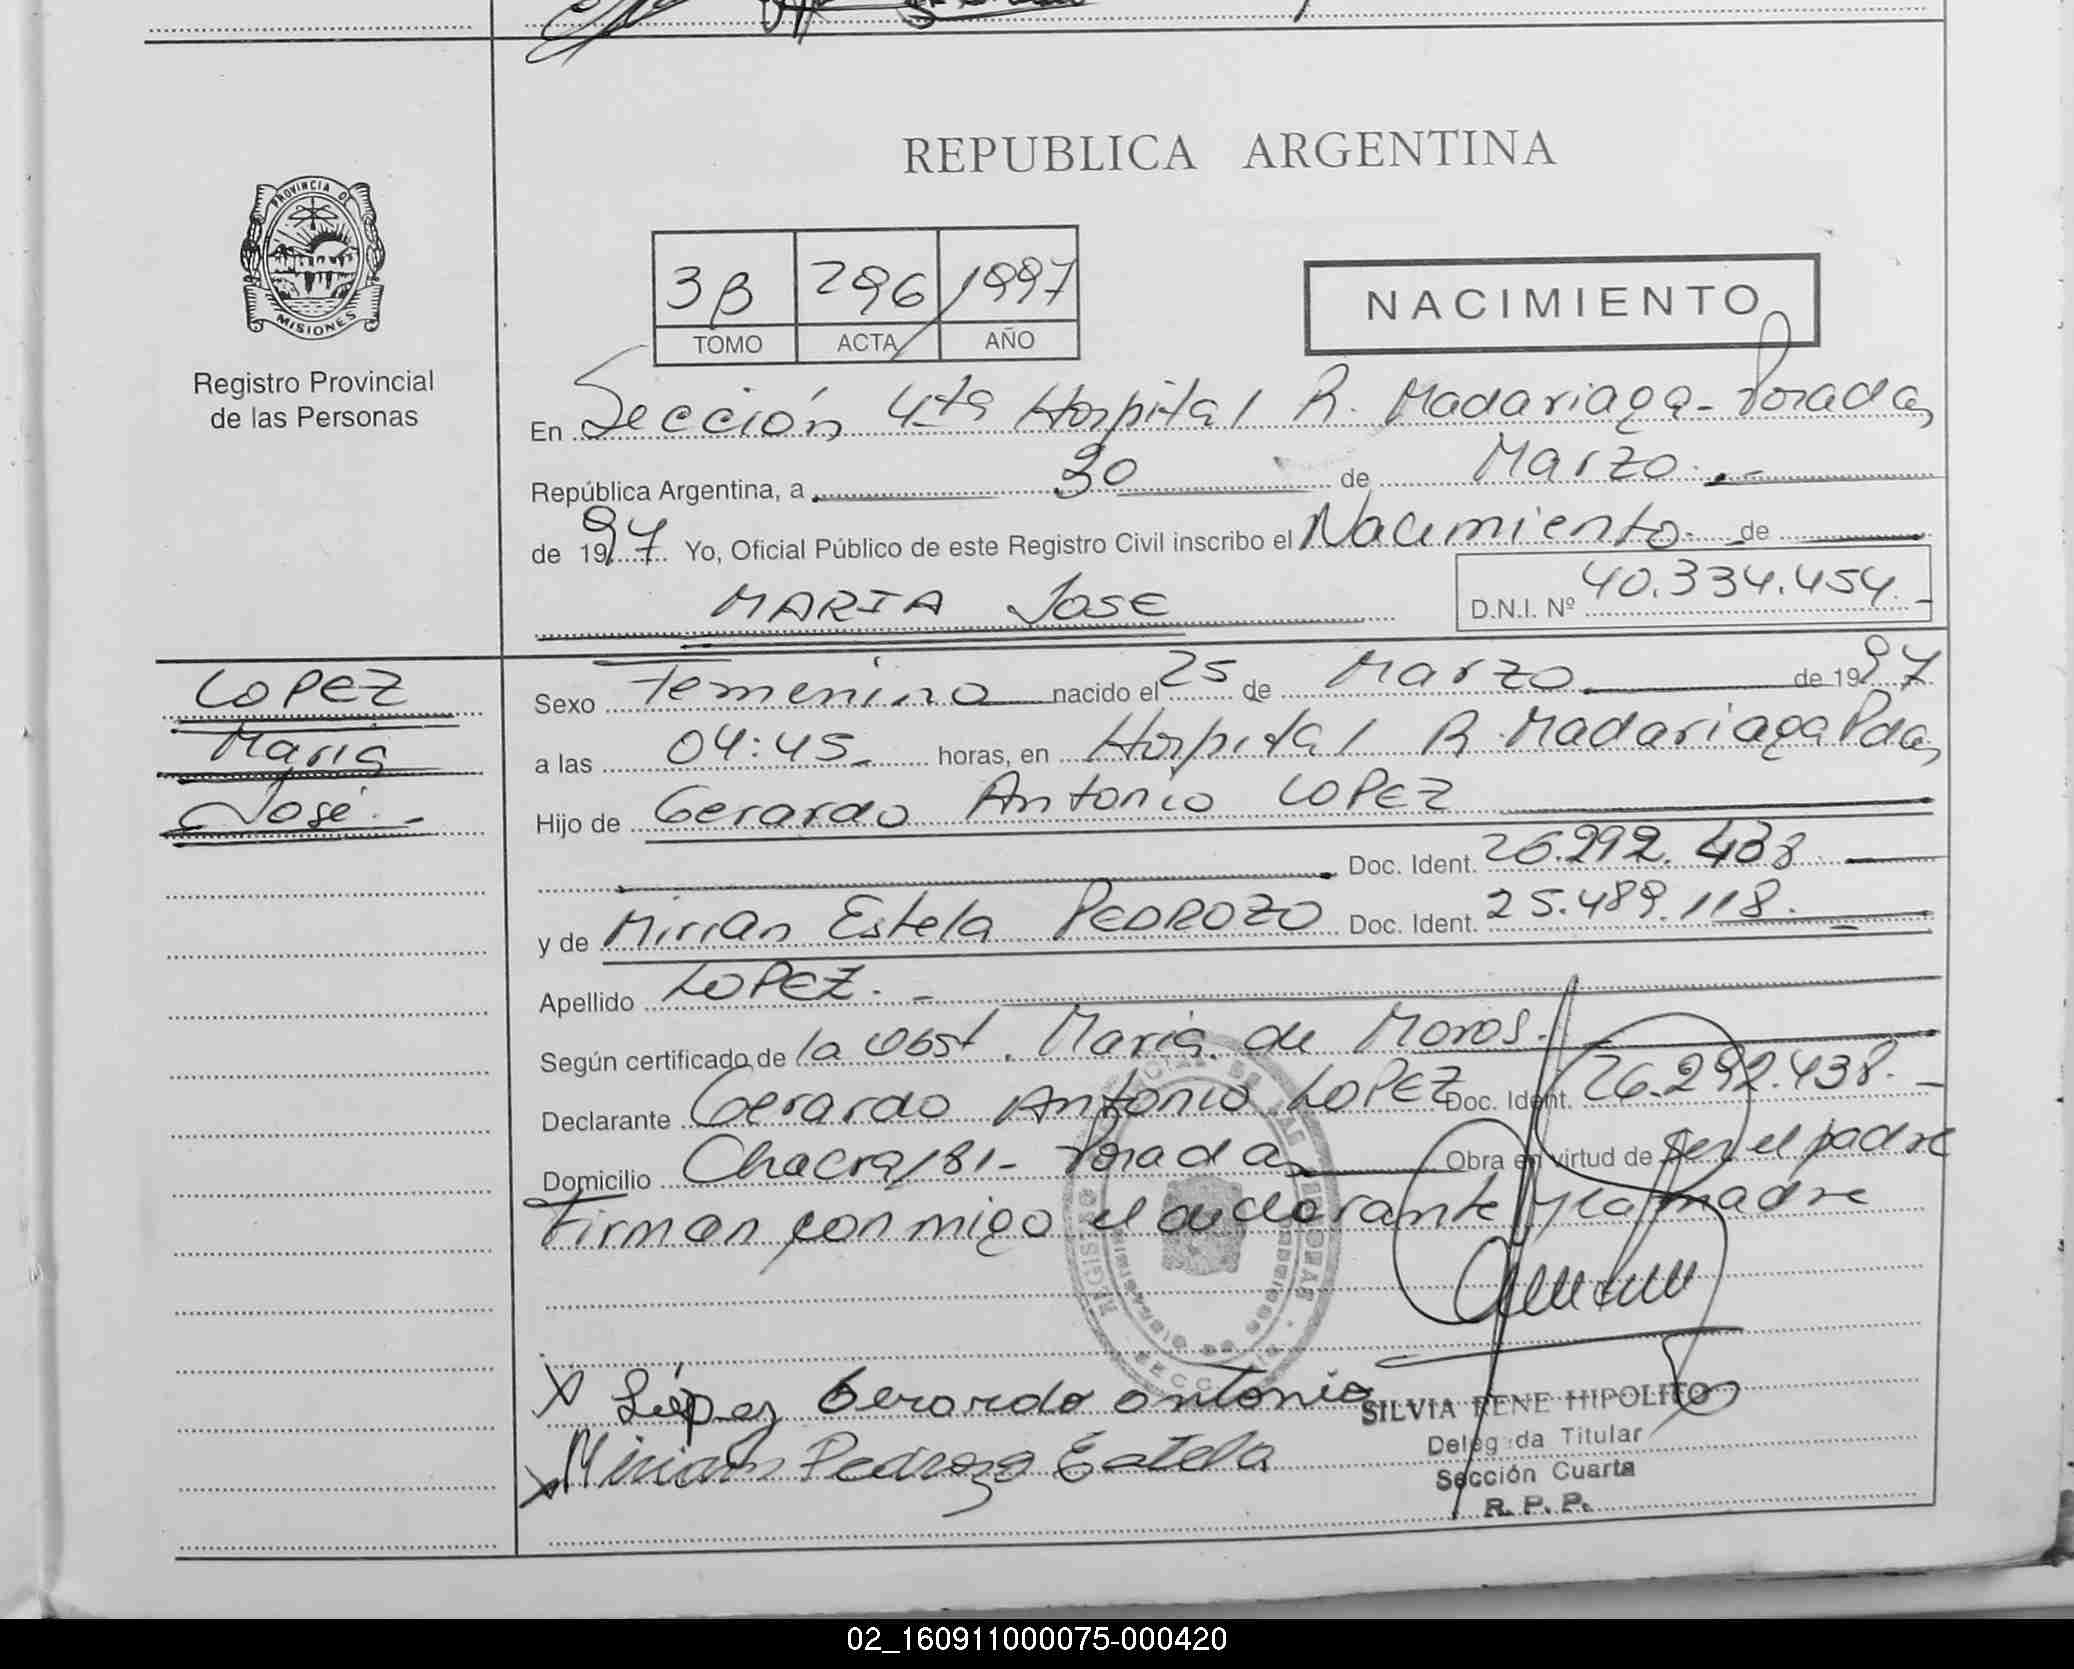 REPUBLICA ARGENTINA
PROVINCIA DE
MISIONES
Registro Provincial
de las Personas
3B 296 1997
TOMO ACTA AÑO
NACIMIENTO
En Sección 4ta Hospital R. Madariaga - Posadas
República Argentina, a 30 de Marzo.-
de 1997 Yo, Oficial Público de este Registro Civil inscribo el Nacimiento de
MARIA JOSE
D.N.I. Nº 40.334.454.-
LOPEZ
Maria
José.-
Sexo Femenino nacido el 25 de Marzo de 1997
a las 04:45 horas, en Hospital R. Madariaga Pdas
Hijo de Gerardo Antonio LOPEZ
Doc. Ident. 26.292.438
y de Mirian Estela PEDROZO Doc. Ident. 25.489.118.
Apellido LOPEZ.-
Según certificado de la Obst. Maria de Moros.
Declarante Gerardo Antonio LOPEZ Doc. Ident. 26.292.438.-
Domicilio Chacra 181- Posadas Obra en virtud de ser el padre
Firman conmigo el declarante y la madre
X López Gerardo Antonio
X Miriam Pedrozo Estela
SILVIA RENE HIPOLITO
Delegada Titular
Sección Cuarta
R. P. P.
02_160911000075-000420